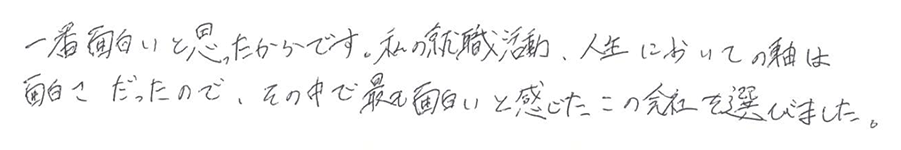 一番面白いと思ったからです。私の就職活動、人生においての軸は
面白さだったので、その中で最も面白いと感じたこの会社を選びました。